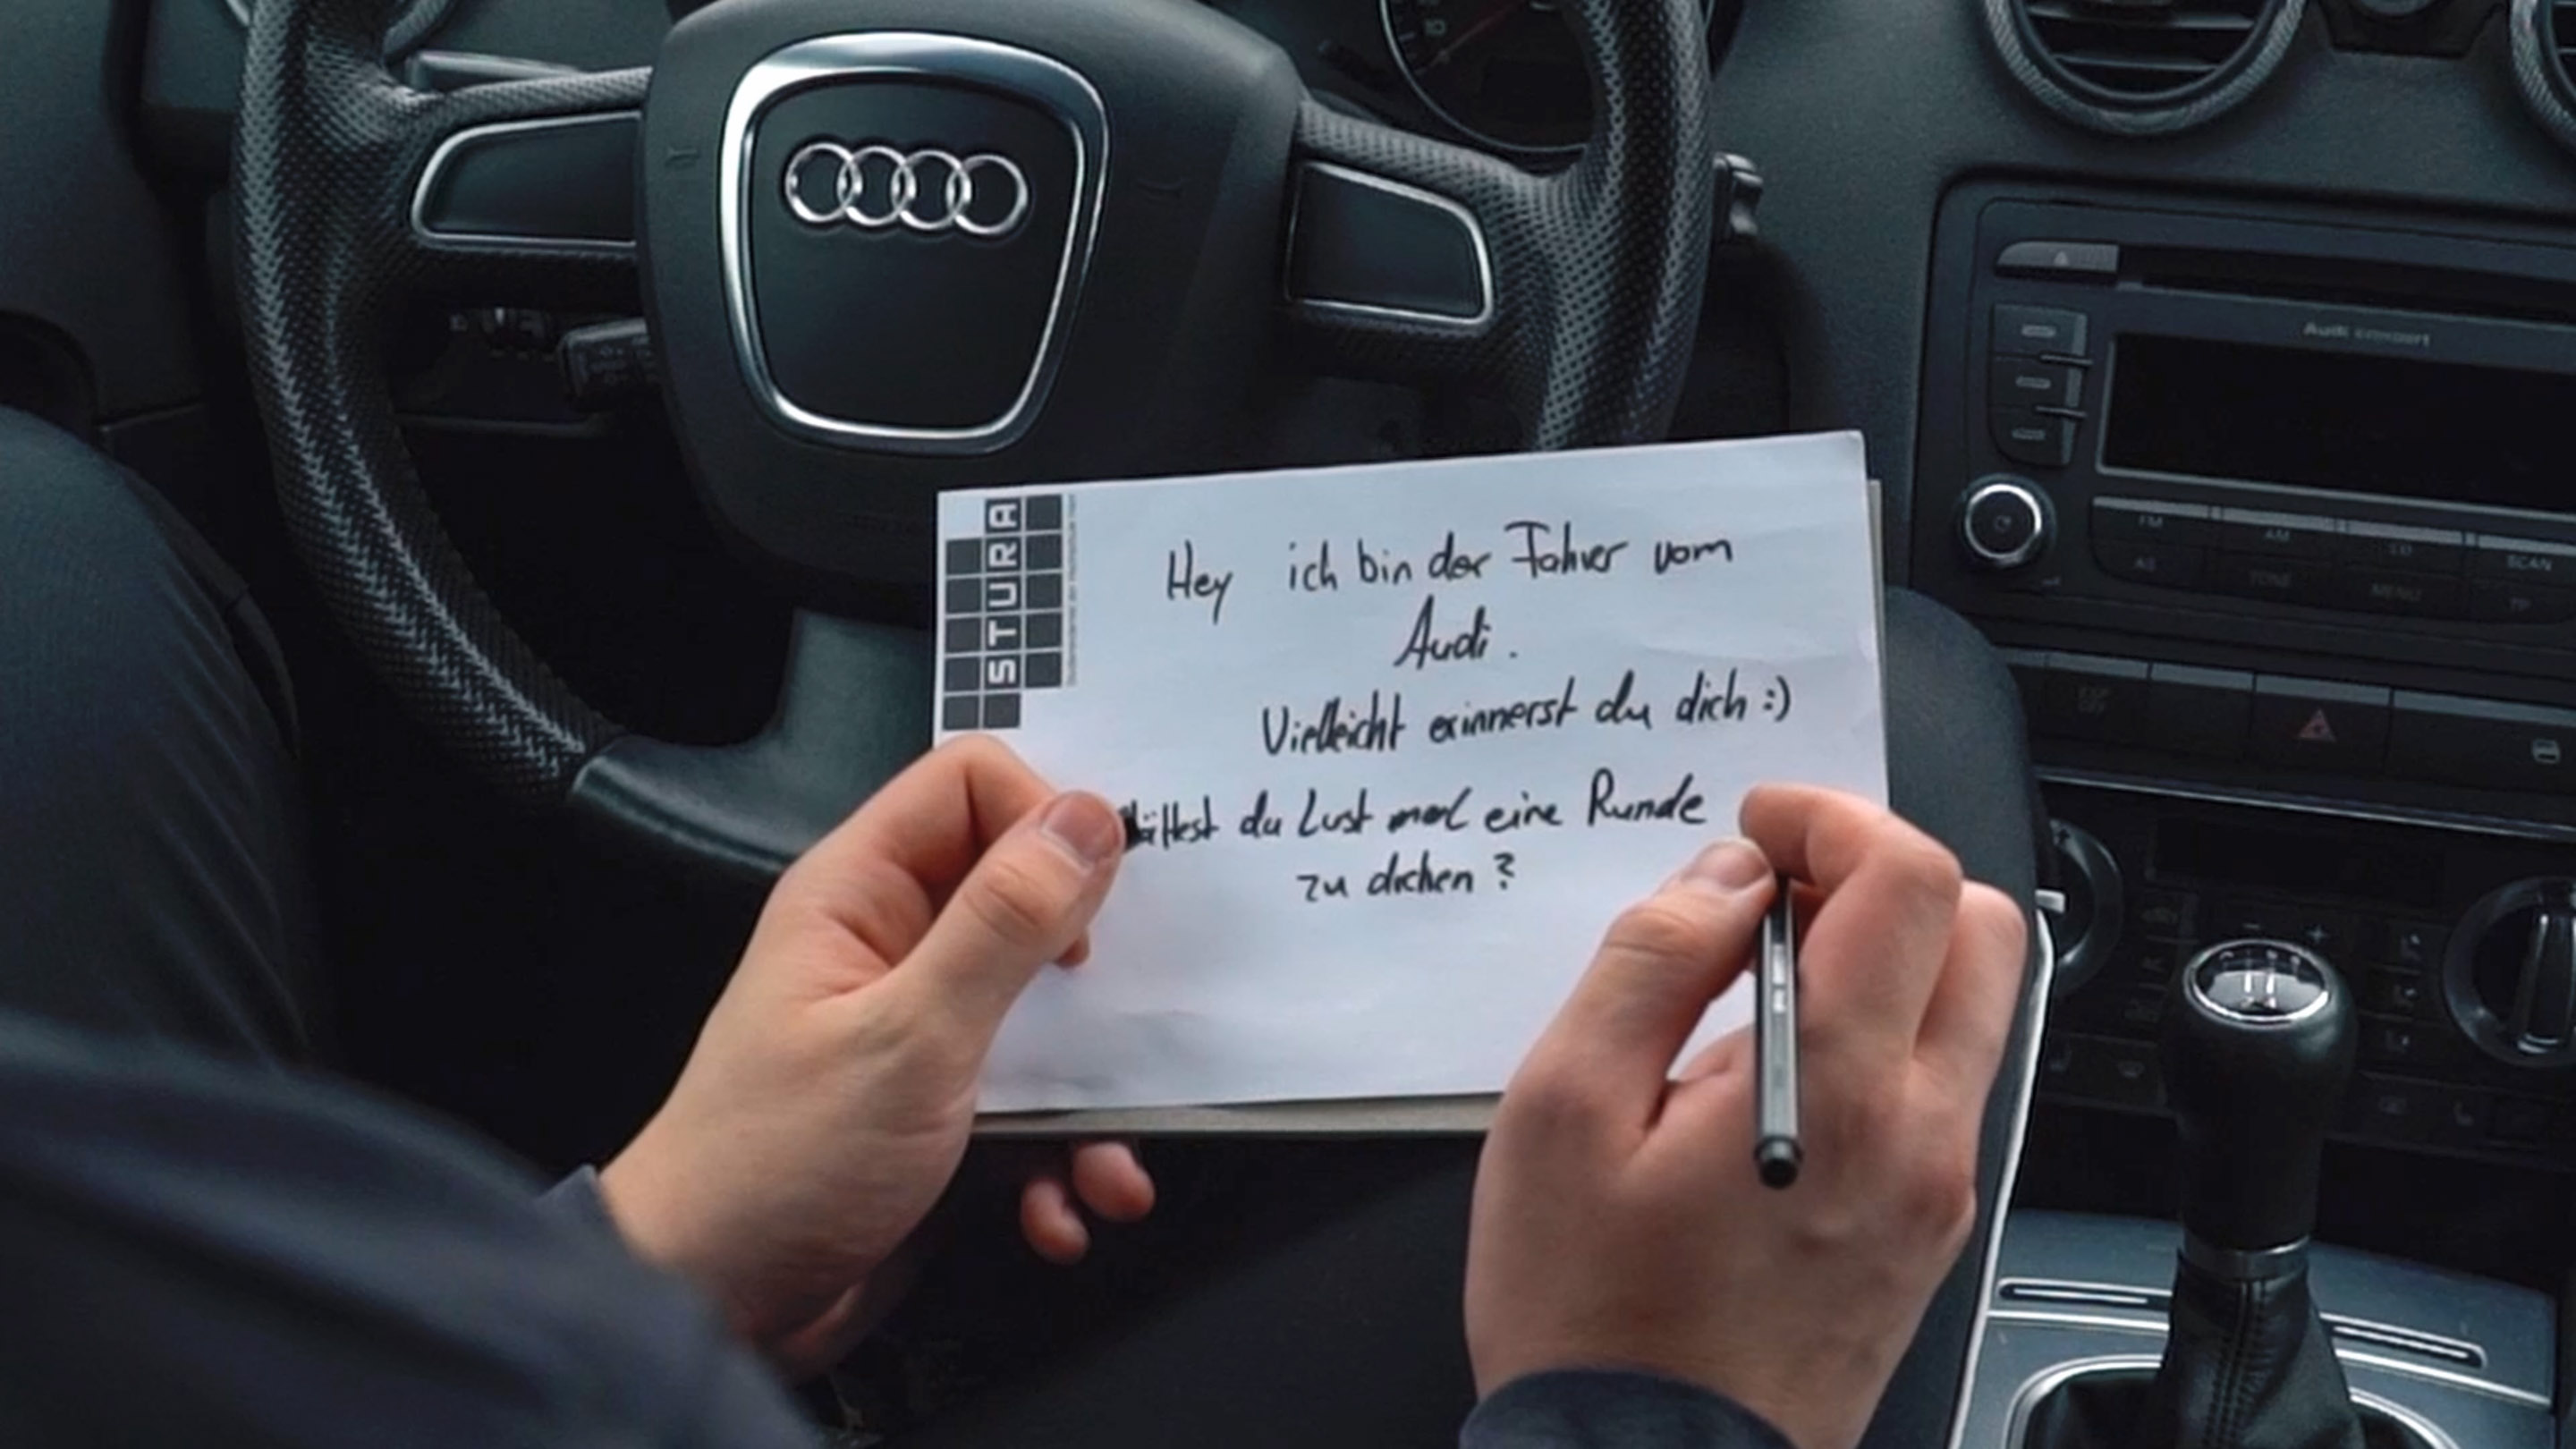 Audi concert
FM AM CD SCAN
AS TONE MENU TP
STURA
Hey ich bin der Fahrer vom
Audi.
Vielleicht erinnerst du dich :)
Hättest du Lust mal eine Runde
zu drehen ?